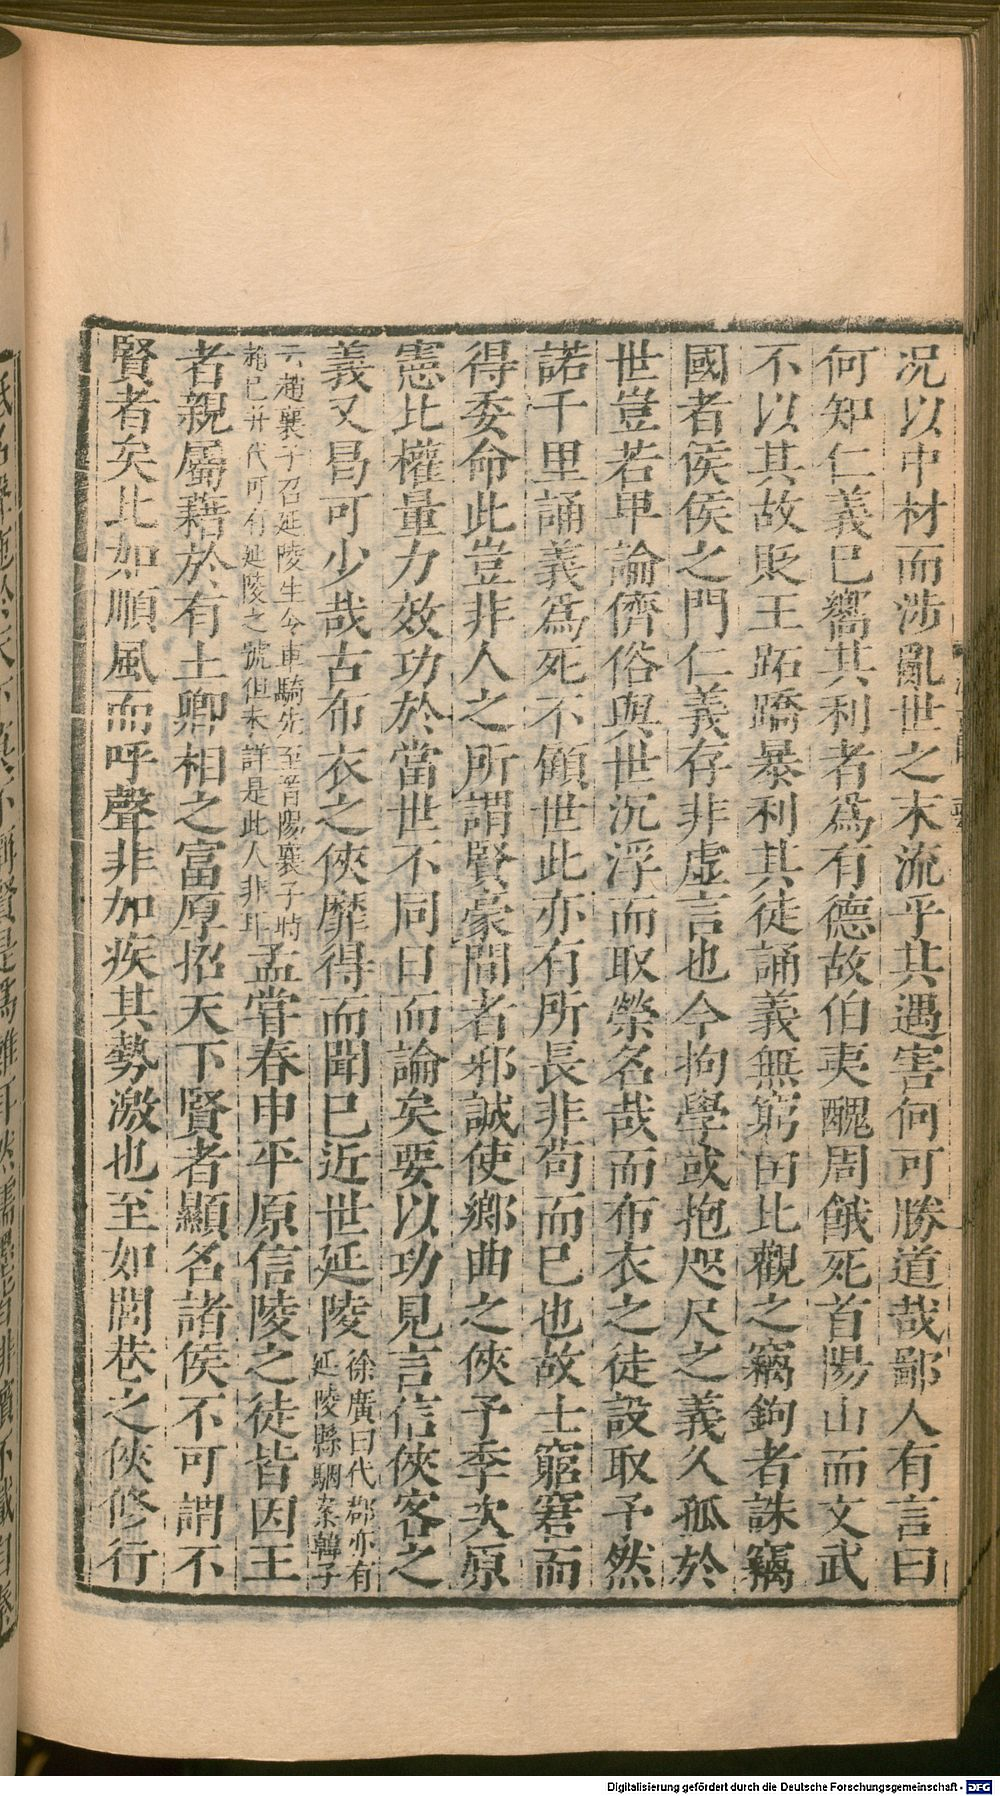 况以中材而涉亂世之末流乎其遇害何可勝道哉鄙人有言曰
何知仁義已嚮其利者爲有德故伯夷醜周餓死首陽山而文武
不以其故貶王跖蹻暴利其徒誦義無窮由此觀之竊鉤者誅竊
國者侯侯之門仁義存非虛言也今拘學或抱咫尺之義久孤於
世豈若卑論儕俗與世沉浮而取榮名哉而布衣之徒設取予然
諾千里誦義爲死不顧世此亦有所長非苟而已也故士窮窘而
得委命此豈非人之所謂賢豪間者邪誠使鄉曲之俠予季次原
憲比權量力效功於當世不同日而論矣要以功見言信俠客之
義又曷可少哉古布衣之俠靡得而聞已近世延陵
徐廣曰代郡亦有
延陵縣駰案韓子
云趙襄子召延陵生令車騎先至晉陽襄子時
趙已并代可有延陵之號但未詳是此人非耳
孟嘗春申平原信陵之徒皆因王
者親屬藉於有土卿相之富厚招天下賢者顯名諸侯不可謂不
賢者矣比如順風而呼聲非加疾其勢激也至如閭巷之俠修行
Digitalisierung gefördert durch die Deutsche Forschungsgemeinschaft - DFG